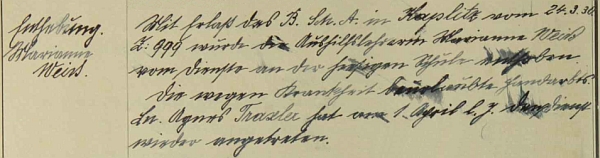 Enthebung.
Marianne
Weiss.
Mit Erlaß des B. Sch. A. in Kaplitz vom 24.3.30.
Z: 999 wurde die Aushilfslehrerin Marianne Weiss
vom Dienste an der hiesigen Schule enthoben.
Die wegen Krankheit beurlaubte Handarbts.
Ln. Agnes Traxler hat am 1. April l. J. den Dienst
wieder angetreten.